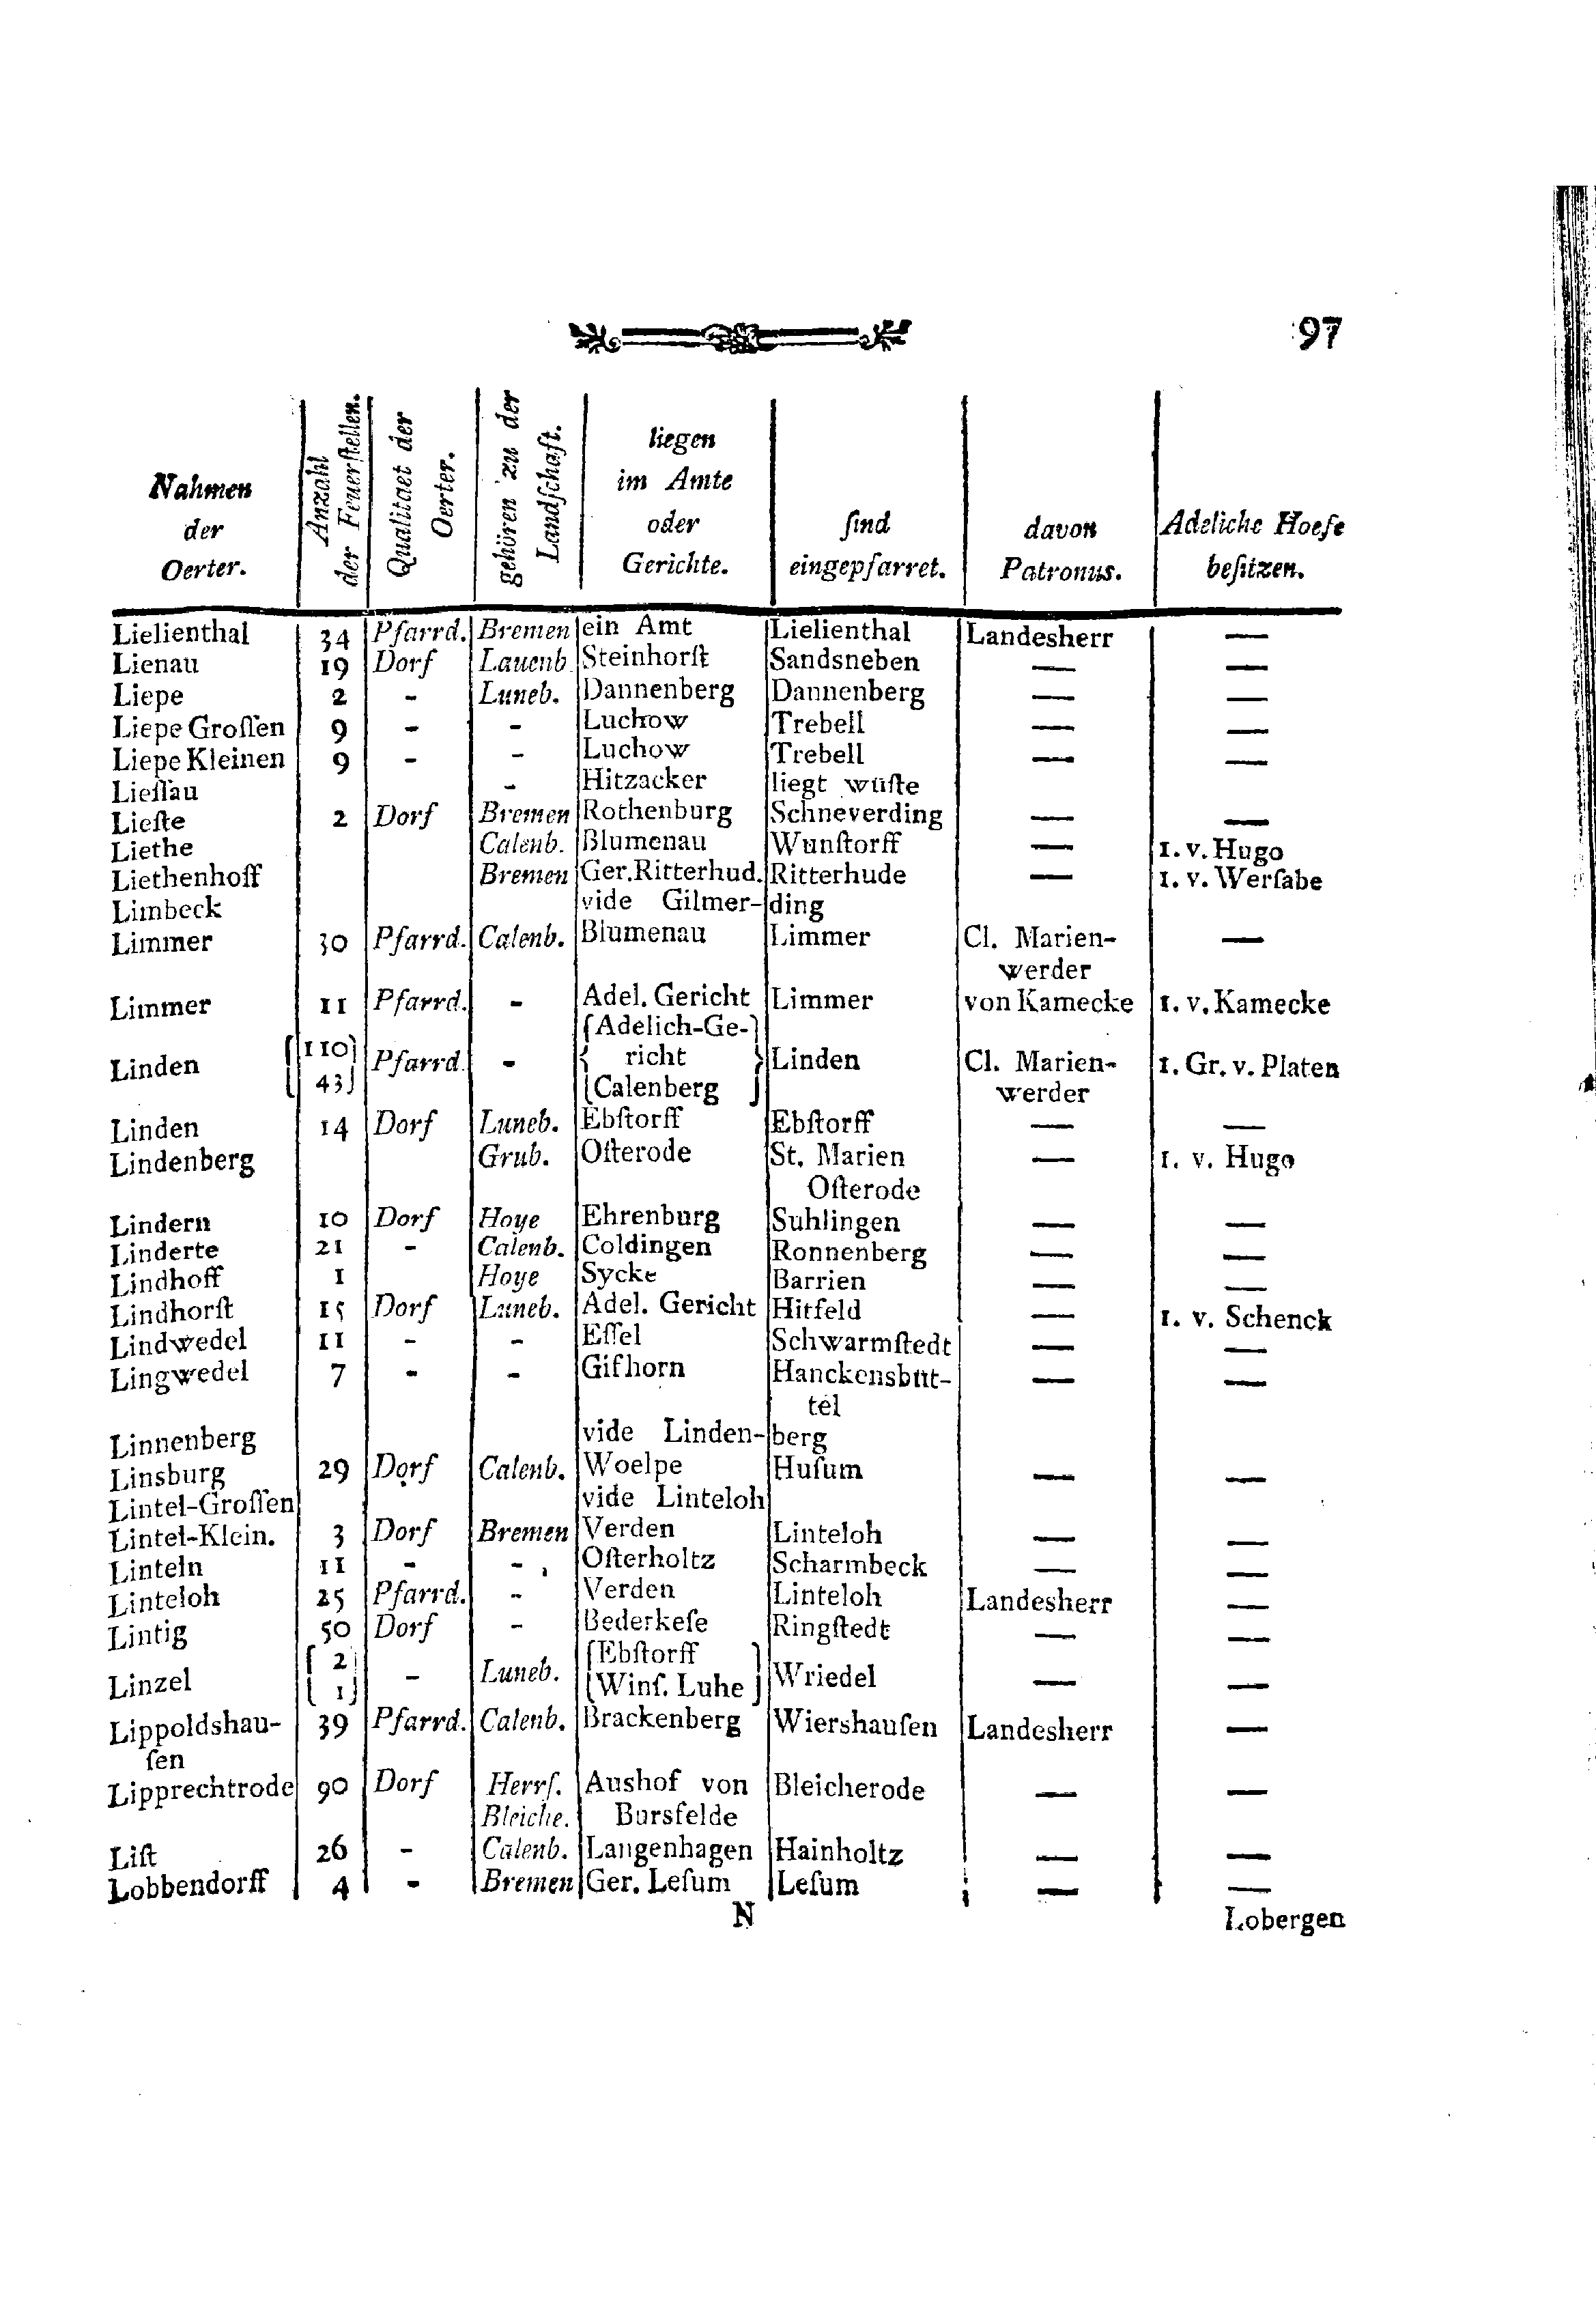 97
Nahmen der Oerter. | Anzahl der Feuerſtellen. | Qualitaet der Oerter. | gehören zu der Landſchaft. | liegen im Amte oder Gerichte. | ſind eingepfarret. | davon Patronus. | Adeliche Hoefe beſitzen.
Lielienthal | 34 | Pfarrd. | Bremen | ein Amt | Lielienthal | Landesherr | —
Lienau | 19 | Dorf | Lauenb. | Steinhorſt | Sandsneben | — | —
Liepe | 2 | - | Luneb. | Dannenberg | Dannenberg | — | —
Liepe Groſſen | 9 | - | - | Luchow | Trebell | — | —
Liepe Kleinen | 9 | - | - | Luchow | Trebell | — | —
Lieſſau | | | - | Hitzacker | liegt wüſte
Lieſte | 2 | Dorf | Bremen | Rothenburg | Schneverding | — | —
Liethe | | | Calenb. | Blumenau | Wunſtorff | — | 1. v. Hugo
Liethenhoff | | | Bremen | Ger. Ritterhud. | Ritterhude | — | 1. v. Werſabe
Limbeck | | | | vide Gilmer-ding
Limmer | 30 | Pfarrd. | Calenb. | Blumenau | Limmer | Cl. Marien- | —
werder
Limmer | 11 | Pfarrd. | - | Adel. Gericht | Limmer | von Kamecke | 1. v. Kamecke
{110 | {Adelich-Ge-}
Linden | Pfarrd. | - | { richt } | Linden | Cl. Marien- | 1. Gr. v. Platen
{43 | {Calenberg } | werder
Linden | 14 | Dorf | Luneb. | Ebſtorff | Ebſtorff | — | —
Lindenberg | | | Grub. | Oſterode | St. Marien | — | 1. v. Hugo
Oſterode
Lindern | 10 | Dorf | Hoye | Ehrenburg | Suhlingen | — | —
Linderte | 21 | - | Calenb. | Coldingen | Ronnenberg | — | —
Lindhoff | 1 | | Hoye | Sycke | Barrien | — | —
Lindhorſt | 15 | Dorf | Luneb. | Adel. Gericht | Hitfeld | — | 1. v. Schenck
Lindwedel | 11 | - | - | Eſſel | Schwarmſtedt | — | —
Lingwedel | 7 | - | - | Gifhorn | Hanckensbüt- | — | —
tel
Linnenberg | | | | vide Linden-berg
Linsburg | 29 | Dorf | Calenb. | Woelpe | Huſum | — | —
Lintel-Groſſen | | | | vide Linteloh
Lintel-Klein. | 3 | Dorf | Bremen | Verden | Linteloh | — | —
Linteln | 11 | - | - | Oſterholtz | Scharmbeck | — | —
Linteloh | 25 | Pfarrd. | - | Verden | Linteloh | Landesherr | —
Lintig | 50 | Dorf | - | Bederkeſe | Ringſtedt | — | —
{2 | {Ebſtorff }
Linzel | - | Luneb. | Wriedel | — | —
{1 | {Winſ. Luhe }
Lippoldshau- | 39 | Pfarrd. | Calenb. | Brackenberg | Wiershauſen | Landesherr | —
ſen
Lipprechtrode | 90 | Dorf | Herrſ. | Aushof von | Bleicherode | — | —
Bleiche. | Bursfelde
Liſt | 26 | - | Calenb. | Langenhagen | Hainholtz | — | —
Lobbendorff | 4 | - | Bremen | Ger. Leſum | Leſum | — | —
N
Lobergen